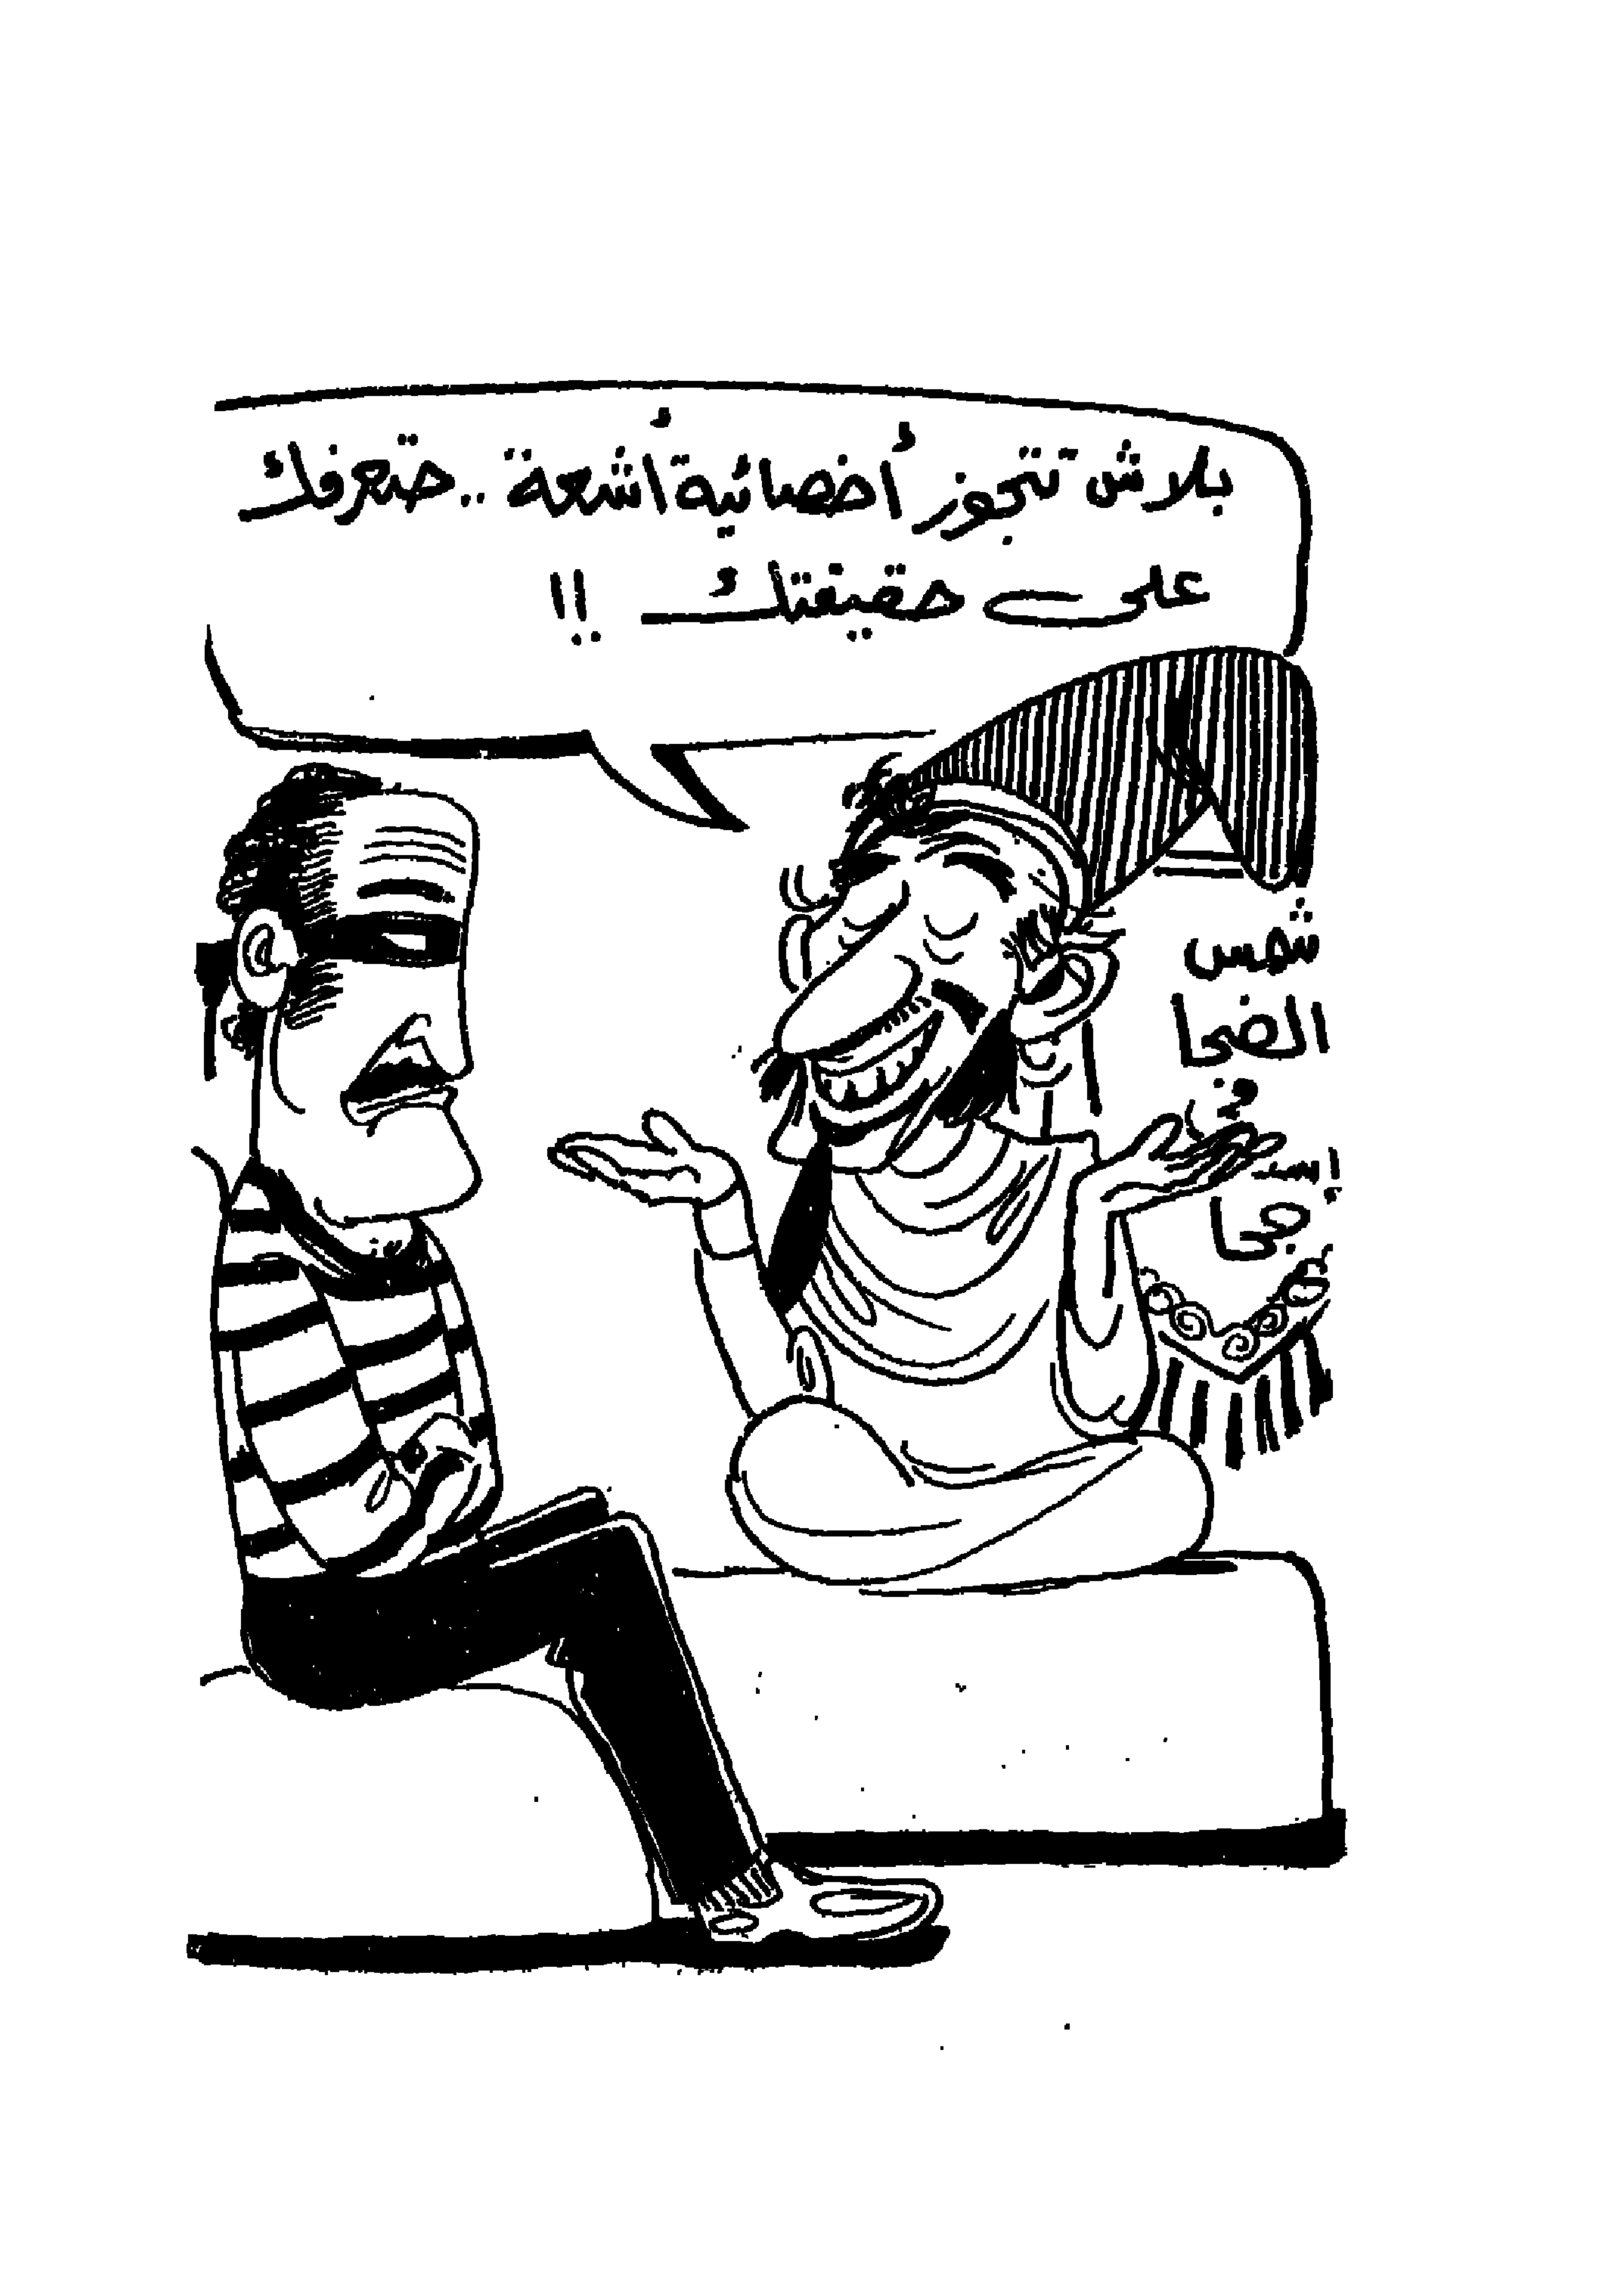 بلاش تتجوز أخصائية أشعة .. حتعرفك
على حقيقتك !!
شمس
الضحا